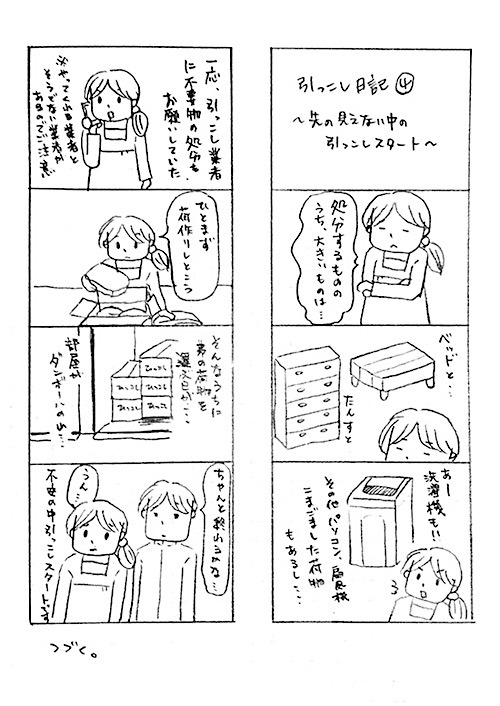 引っこし日記④
～先の見えない中の
引っこしスタート～
処分するものの
うち、大きいものは…
ベッドと…
たんすと
あー
洗濯機も!!
その他パソコン、扇風機
こまごました荷物
もあるし…
一応、引っこし業者
に不要物の処分も
お願いしていた
※やってくれる業者と
そうでない業者が
あるのでご注意
ひとまず
荷作りしとこう
そんなうちに
男の荷物を
運ぶ日が…
ひっこし
ひっこし
ひっこし
ひっこし
ひっこし
部屋が
ダンボールの山…
ちゃんと終わるかな…
うん…
不安の中引っこしスタートです
つづく。